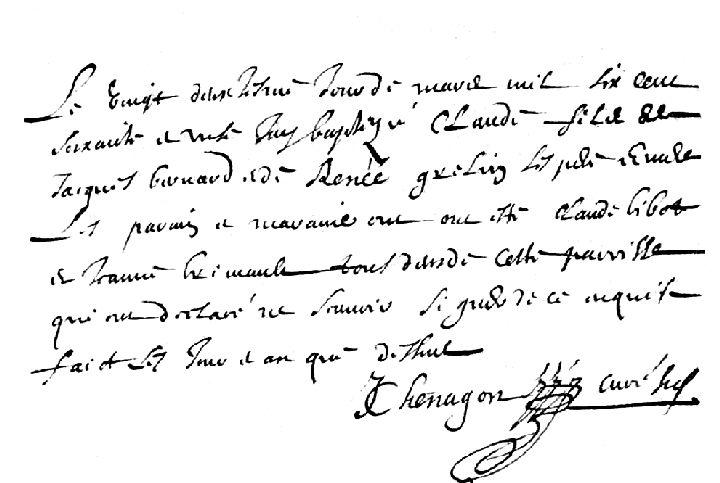 Le vingt deuxiesme Jour de mars mil six cent
soixante et onze Jay baptizé Claude fils de
Jacques bernard et de Renée grelin ses pere et mere
Les parain et maraine ont ont esté Claude libot
et Jeanne brimault tous deux de cette parroisse
qui ont declaré ne scavoir signer de ce enquis
faict les Jour et an que dessus
J Chenagon curé